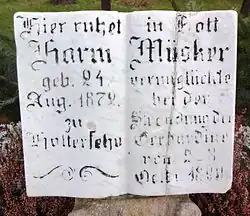 Hier ruhet in Gott
Harm Müsker
geb. 24. verunglückte
Aug. 1872. bei der
zu Strandung der
Holterfehn Gerhardine
von 2-3
Oct.